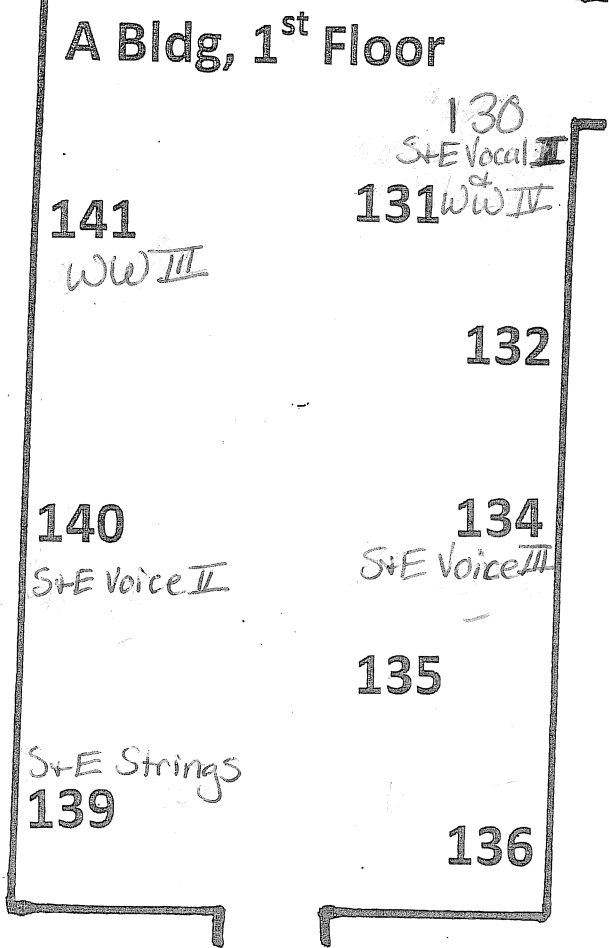 A Bldg, 1st Floor
130
S+E Vocal II
&
131 WW IV
141
WW III
132
140
S+E Voice II
134
S+E Voice III
135
S+E Strings
139
136